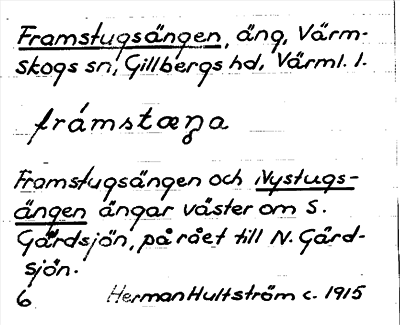 Framstugsängen, äng, Värm-
skogs sn, Gillbergs hd, Värml. l.
frámstæŋa
Framstugsängen och Nystugs-
ängen ängar väster om S.
Gårdsjön, på rået till N. Gård-
sjön.
6 Herman Hultström c. 1915